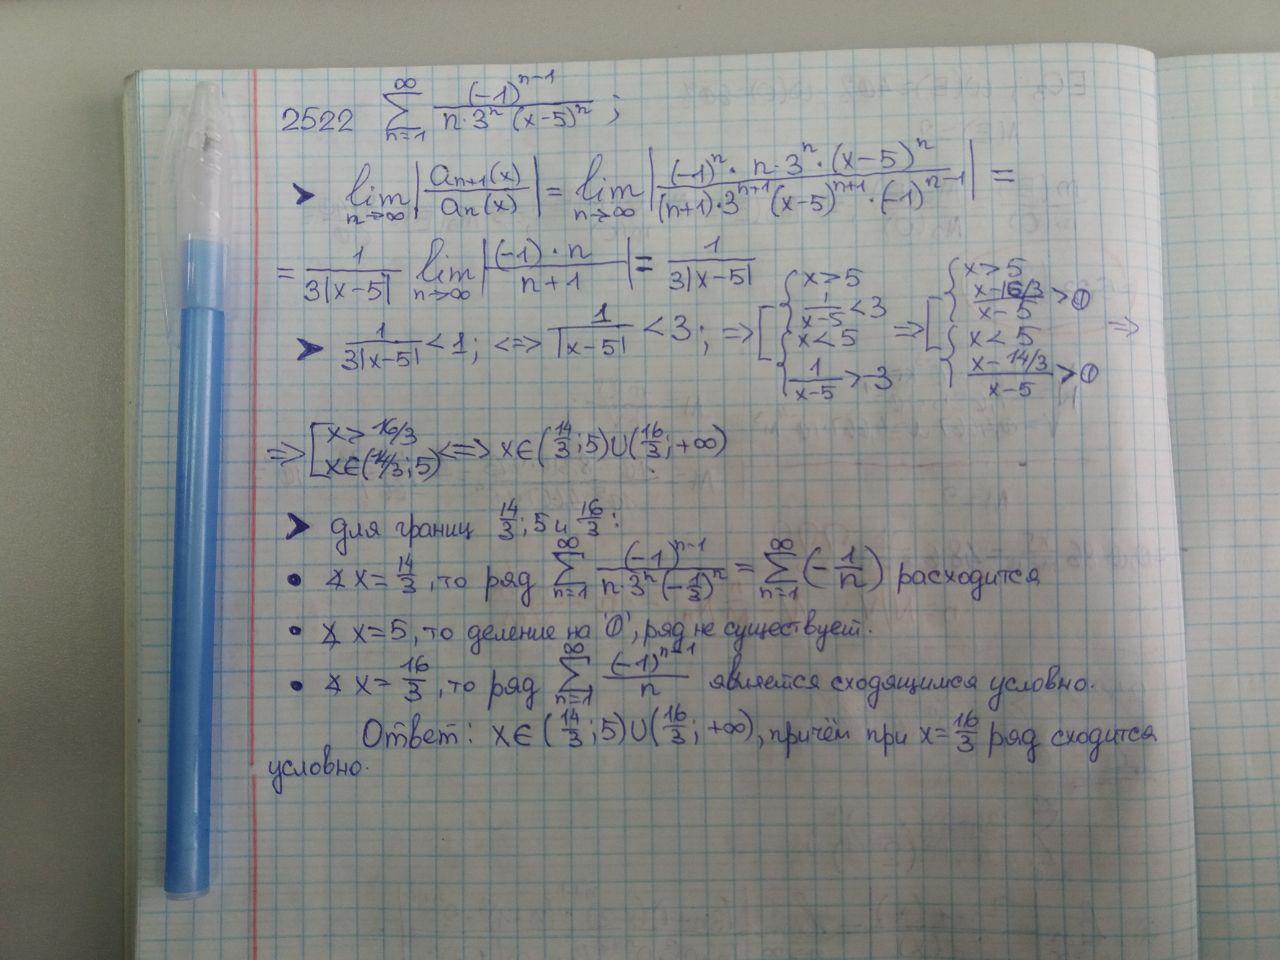 2522 ∑_{n=1}^{∞} (-1)^{n-1} / (n·3^n (x-5)^n) ;
➤ lim_{n→∞} |a_{n+1}(x) / a_n(x)| = lim_{n→∞} |((-1)^n · n·3^n · (x-5)^n) / ((n+1)·3^{n+1} (x-5)^{n+1} · (-1)^{n-1})| =
= 1/(3|x-5|) lim_{n→∞} |((-1)·n)/(n+1)| = 1/(3|x-5|)
➤ 1/(3|x-5|) < 1; <=> 1/|x-5| < 3; => [ { x>5 ; 1/(x-5) < 3 ; { x<5 ; 1/(x-5) > -3 => [ { x>5 ; (x-16/3)/(x-5) > 0 ; { x<5 ; (x-14/3)/(x-5) > 0 =>
=> [ x > 16/3 ; x∈(14/3;5) <=> x∈(14/3;5)∪(16/3;+∞)
➤ для границ 14/3; 5 и 16/3:
• ∡ x = 14/3, то ряд ∑_{n=1}^{∞} (-1)^{n-1} / (n·3^n (-1/3)^n) = ∑_{n=1}^{∞} (-1/n) расходится
• ∡ x = 5, то деление на '0', ряд не существует.
• ∡ x = 16/3, то ряд ∑_{n=1}^{∞} (-1)^{n-1} / n является сходящимся условно.
Ответ: x∈(14/3;5)∪(16/3;+∞), причём при x=16/3 ряд сходится
условно.